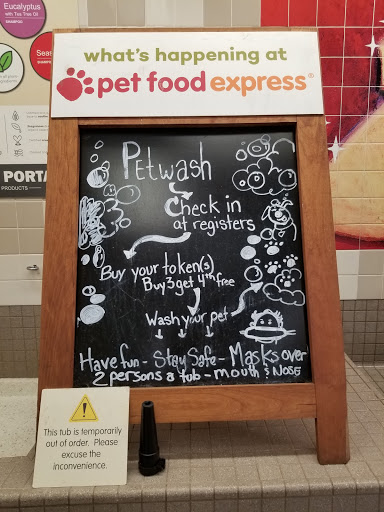 Eucalyptus
with Tea Tree Oil
SHAMPOO
Sea
SHAMP
what's happening at
pet food express®
PORTA
PRODUCTS
Petwash
Check in
at registers
Buy your token(s)
Buy 3 get 4th free
Wash your pet
Have fun - Stay Safe - Masks over
2 persons a tub - mouth & NOSE
This tub is temporarily
out of order. Please
excuse the
inconvenience.